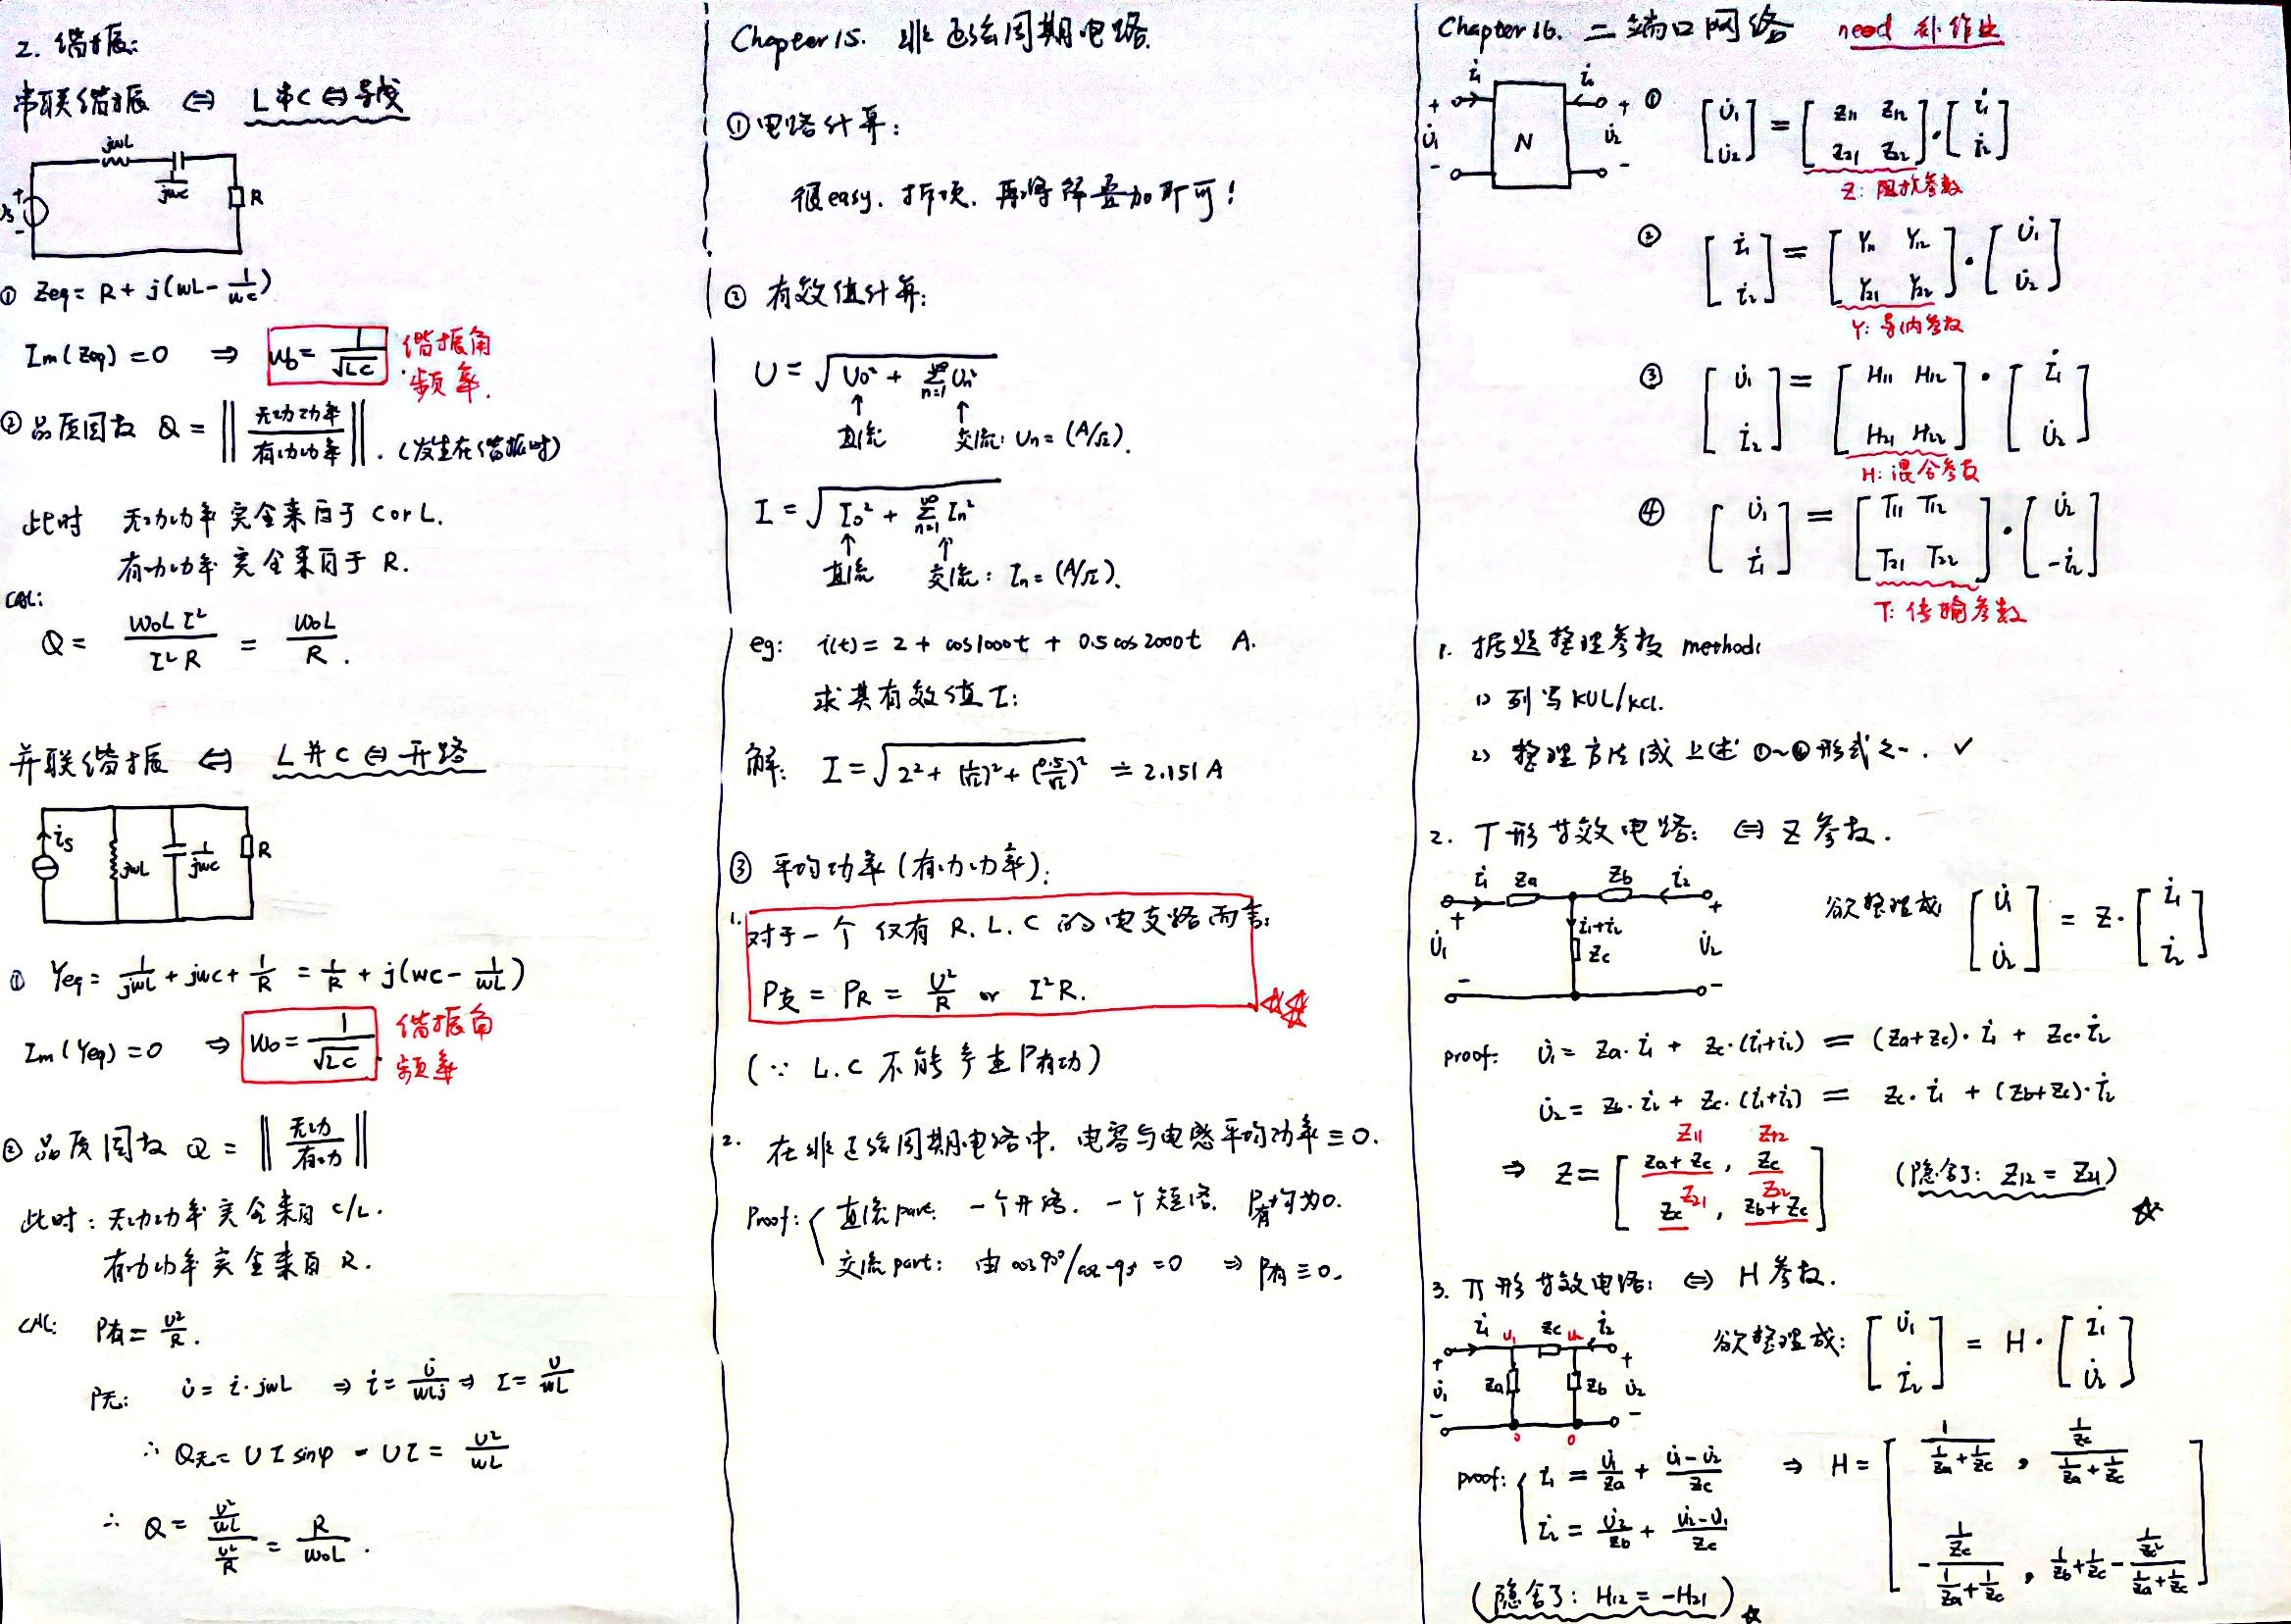 2. 谐振:
串联谐振 ⇔ L串C ⇔ 导线
jωL
1/jωC
R
+
-
① Zeq = R + j(ωL - 1/ωC)
Im(Zeq) = 0 ⇒ ω0 = 1/√LC 谐振角频率.
② 品质因数 Q = ‖无功功率/有功功率‖. (发生在谐振时)
此时 无功功率完全来自于 C or L.
有功功率完全来自于 R.
CAL:
Q = ω0LI²/I²R = ω0L/R.
并联谐振 ⇔ L并C ⇔ 开路
is
jωL
1/jωC
R
① Yeq = 1/jωL + jωC + 1/R = 1/R + j(ωC - 1/ωL)
Im(Yeq) = 0 ⇒ ω0 = 1/√LC. 谐振角频率
② 品质因数 Q = ‖无功/有功‖
此时: 无功功率完全来自 C/L.
有功功率完全来自 R.
CAL: P有 = U²/R.
P无: U̇ = İ·jωL ⇒ İ = U̇/ωLj ⇒ I = U/ωL
∴ Q无 = UI sinφ = UI = U²/ωL
∴ Q = (U²/ωL)/(U²/R) = R/ω0L.
Chapter 15. 非正弦周期电路.
① 电路计算:
很easy. 拆项. 再将解叠加即可!
② 有效值计算:
U = √(U0² + Σ(n=1→∞) Un²)
↑ ↑
直流 交流: Un = (A/√2).
I = √(I0² + Σ(n=1→∞) In²)
↑ ↑
直流 交流: In = (A/√2).
eg: i(t) = 2 + cos1000t + 0.5cos2000t A.
求其有效值I:
解: I = √(2² + (1/√2)² + (0.5/√2)²) ≐ 2.151A
③ 平均功率 (有功功率):
1. 对于一个仅有 R. L. C 的电支路而言:
P支 = PR = U²/R or I²R.
(∵ L.C 不能产生P有功)
2. 在非正弦周期电路中, 电容与电感平均功率≡0.
Proof: { 直流part: 一个开路. 一个短路. P有均为0.
交流part: 由cos90°/cos-90° = 0 ⇒ P有≡0.
Chapter 16. 二端口网络 need 补作业
İ1 İ2
+ +
U̇1 N U̇2
- -
① [U̇1 U̇2] = [Z11 Z12 Z21 Z22]·[İ1 İ2]
Z: 阻抗参数
② [İ1 İ2] = [Y11 Y12 Y21 Y22]·[U̇1 U̇2]
Y: 导纳参数
③ [U̇1 İ2] = [H11 H12 H21 H22]·[İ1 U̇2]
H: 混合参数
④ [U̇1 İ1] = [T11 T12 T21 T22]·[U̇2 -İ2]
T: 传输参数
1. 据题整理参数 method:
1) 列写 KVL/KCL.
2) 整理方程成上述①~④形式之一. ✓
2. T形等效电路: ⇔ Z参数.
İ1 Za Zb İ2
+ +
U̇1 İ1+İ2 Zc U̇2
- -
欲整理成 [U̇1 U̇2] = Z·[İ1 İ2]
proof: U̇1 = Za·İ1 + Zc·(İ1+İ2) = (Za+Zc)·İ1 + Zc·İ2
U̇2 = Zb·İ2 + Zc·(İ1+İ2) = Zc·İ1 + (Zb+Zc)·İ2
Z11 Z12
⇒ Z = [Za+Zc, Zc
Z21 Z22
Zc, Zb+Zc] (隐含了: Z12 = Z21)
3. π形等效电路: ⇔ H参数.
İ1 U1 Zc U2 İ2
+ +
U̇1 Za Zb U̇2
- -
0 0
欲整理成: [U̇1 İ2] = H·[İ1 U̇2]
proof: { İ1 = U̇1/Za + (U̇1-U̇2)/Zc
İ2 = U̇2/Zb + (U̇2-U̇1)/Zc
⇒ H = [1/(1/Za+1/Zc), (1/Zc)/(1/Za+1/Zc)
-(1/Zc)/(1/Za+1/Zc), 1/Zb+1/Zc-(1/Zc²)/(1/Za+1/Zc)]
(隐含了: H12 = -H21)